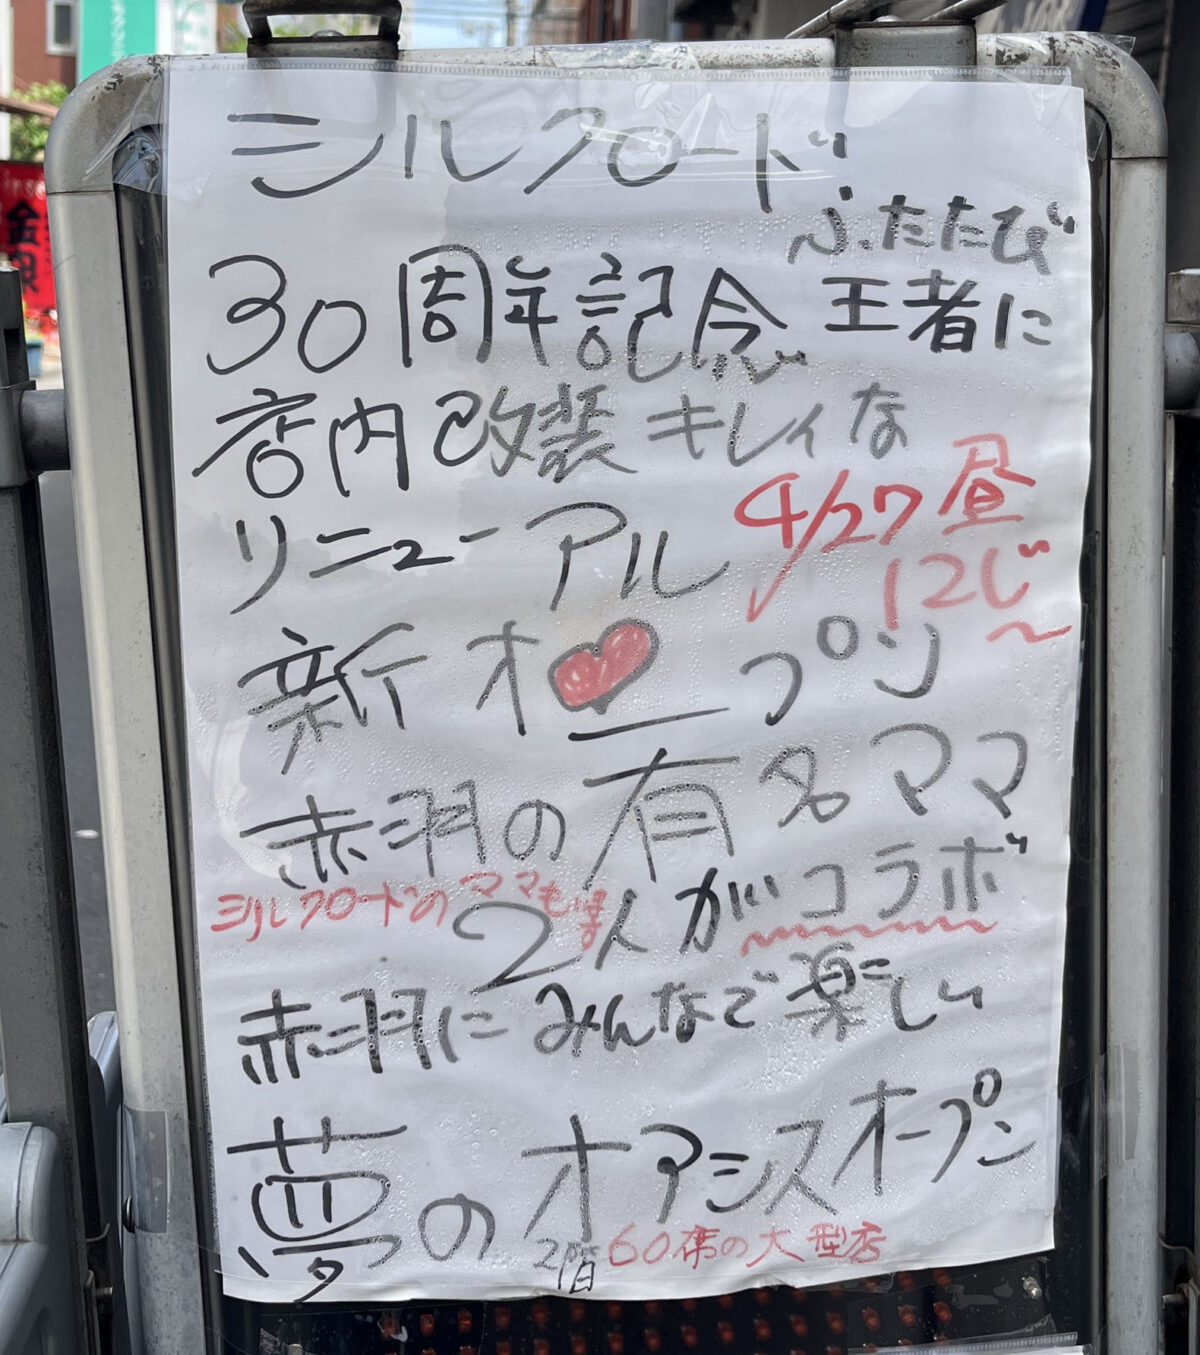 シルクロード
ふたたび
30周年記念 王者に
店内改装 キレイな
リニューアル
4/27 昼
12じ〜
新オープン
赤羽の有名ママ
シルクロードのママもほ
2人がコラボ
赤羽にみんなで楽しい
夢のオアシスオープン
2階 60席の大型店